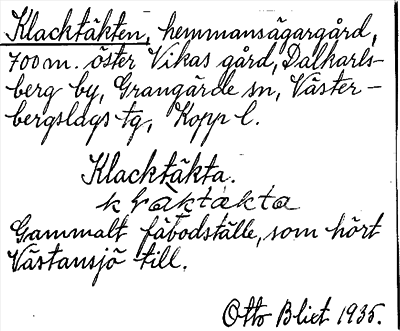 Klacktäkten, hemmansägargård,
700 m. öster Vikas gård, Dalkarls-
berg by, Grangärde sn, Väster-
bergslags tg, Kopp l.
Klacktäkta.
Gammalt fäbodställe, som hört
Västansjö till.
Otto Blixt 1935.